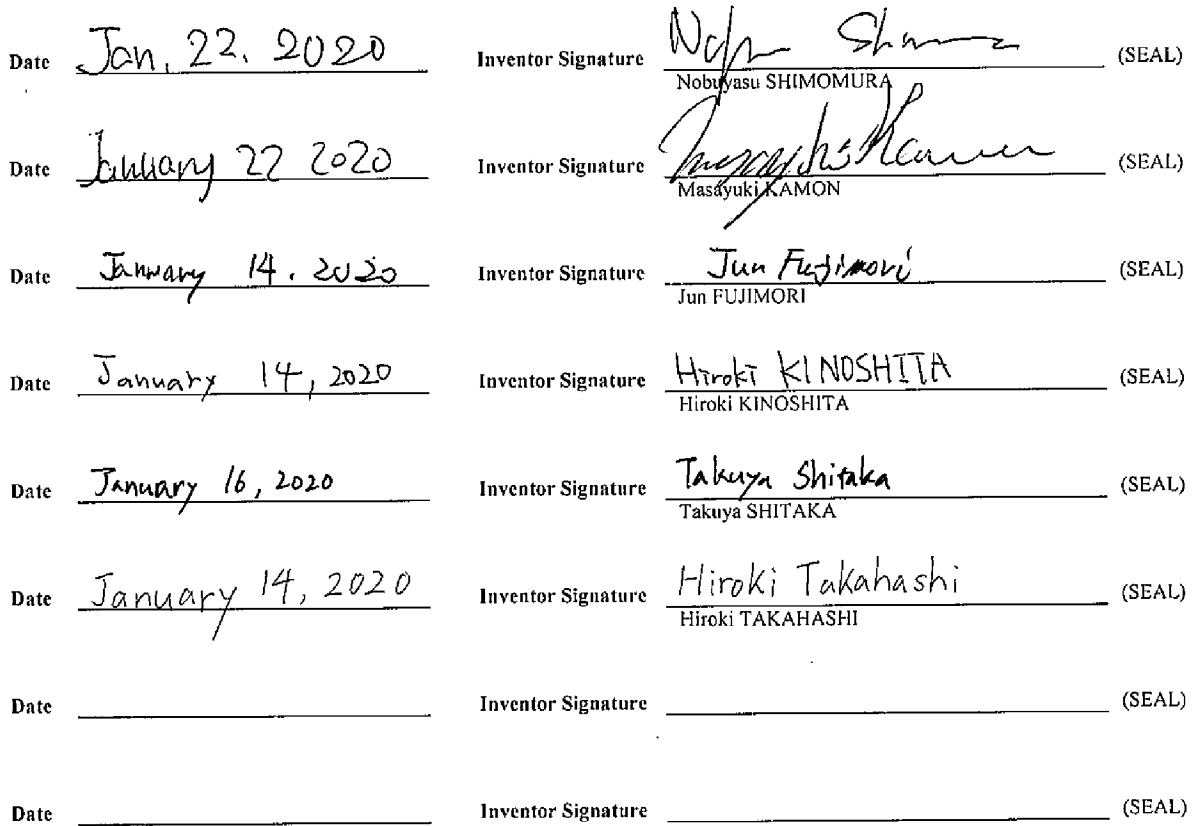 Date Jan. 22. 2020 Inventor Signature (SEAL)
Nobuyasu SHIMOMURA
Date January 22 2020 Inventor Signature Masayuki Kamon (SEAL)
Masayuki KAMON
Date January 14. 2020 Inventor Signature Jun Fujimori (SEAL)
Jun FUJIMORI
Date January 14, 2020 Inventor Signature Hiroki KINOSHITA (SEAL)
Hiroki KINOSHITA
Date January 16, 2020 Inventor Signature Takuya Shitaka (SEAL)
Takuya SHITAKA
Date January 14, 2020 Inventor Signature Hiroki Takahashi (SEAL)
Hiroki TAKAHASHI
Date Inventor Signature (SEAL)
Date Inventor Signature (SEAL)